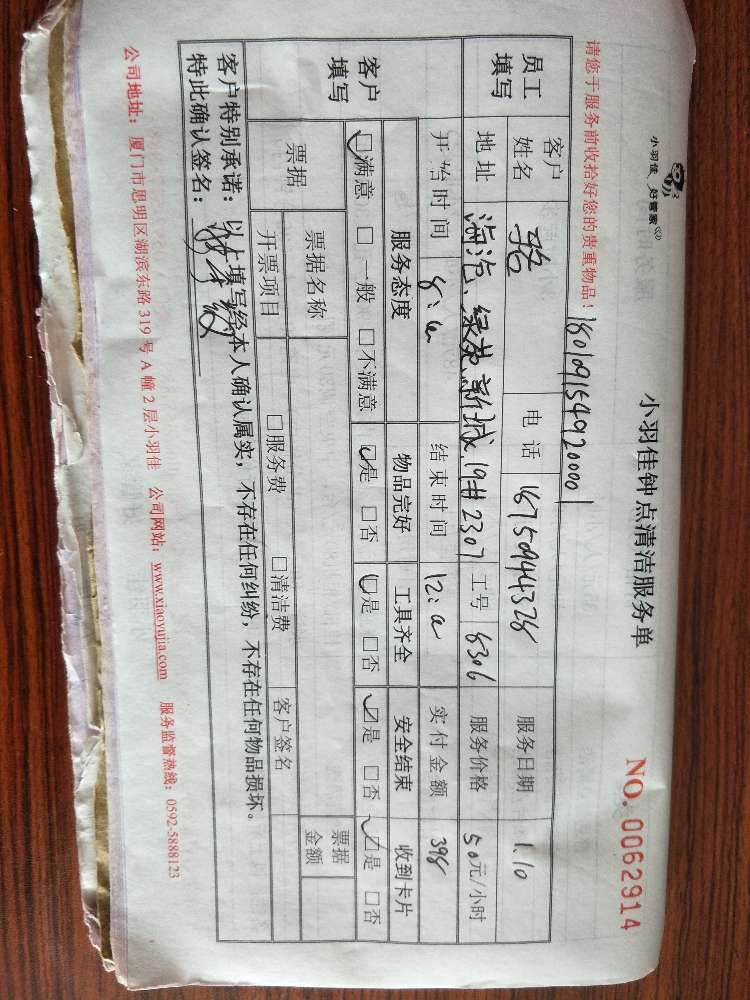 小羽佳 好管家
小羽佳钟点清洁服务单
NO. 0062914
请您于服务前收拾好您的贵重物品！ 180109154920001
员工填写 客户姓名 电话 服务日期 1.10
地址 海沧、绿苑新城19#2307 工号 8306 服务价格 50元/小时
开始时间 8: 结束时间 12: 实付金额 398
客户填写 服务态度 物品完好 工具齐全 安全结束 收到卡片
☑满意 □一般 □不满意 ☑是 □否 ☑是 □否 ☑是 □否 ☑是 □否
票据 票据名称 票据金额
开票项目 □服务费 □清洁费 客户签名
客户特别承诺：以上填写经本人确认属实，不存在任何纠纷，不存在任何物品损坏。
特此确认签名：
公司地址：厦门市思明区湖滨东路 319 号 A 幢 2 层小羽佳 公司网站：www.xiaoyujia.com 服务监督热线：0592-5888123